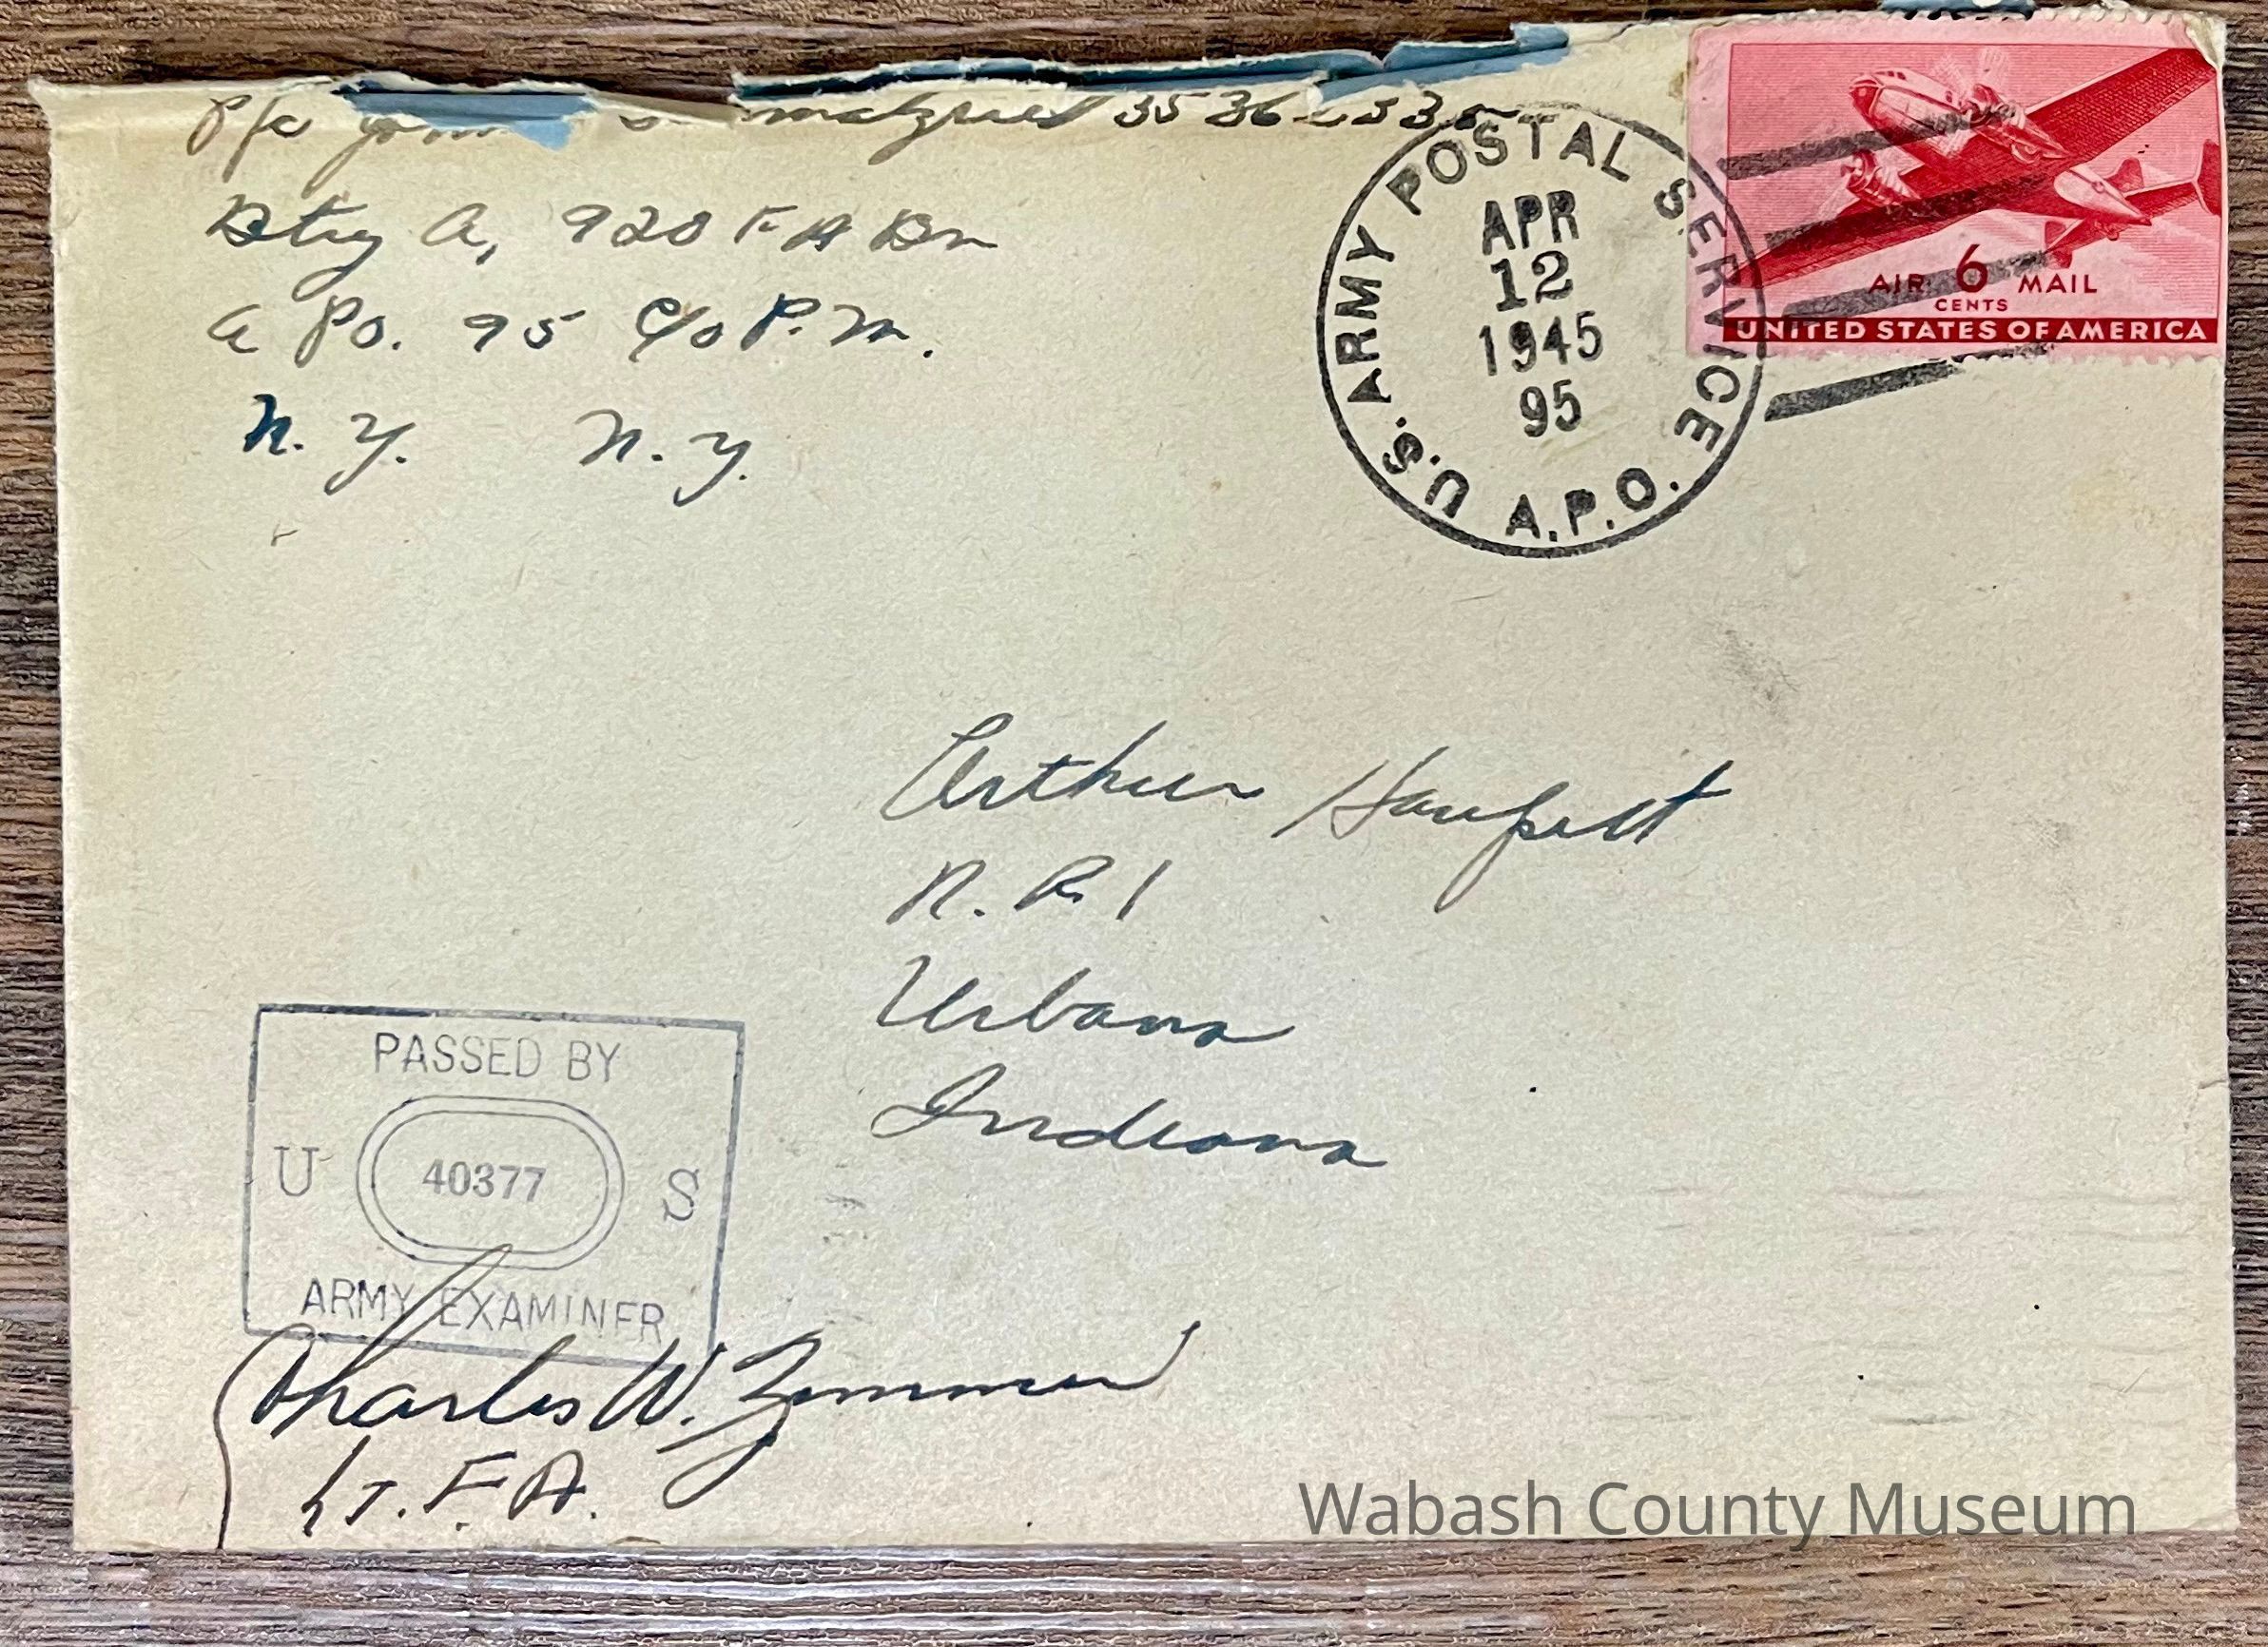 Pfc
Btry A, 920 F A Bn
A P O. 95 c/o P. M.
N. Y. N. Y.
U.S. ARMY POSTAL SERVICE
APR
12
1945
95
A.P.O.
AIR 6 MAIL
CENTS
UNITED STATES OF AMERICA
Arthur Haupert
R. R. 1
Urbana
Indiana
PASSED BY
U 40377 S
ARMY EXAMINER
Charles W.
Lt. F. A.
Wabash County Museum